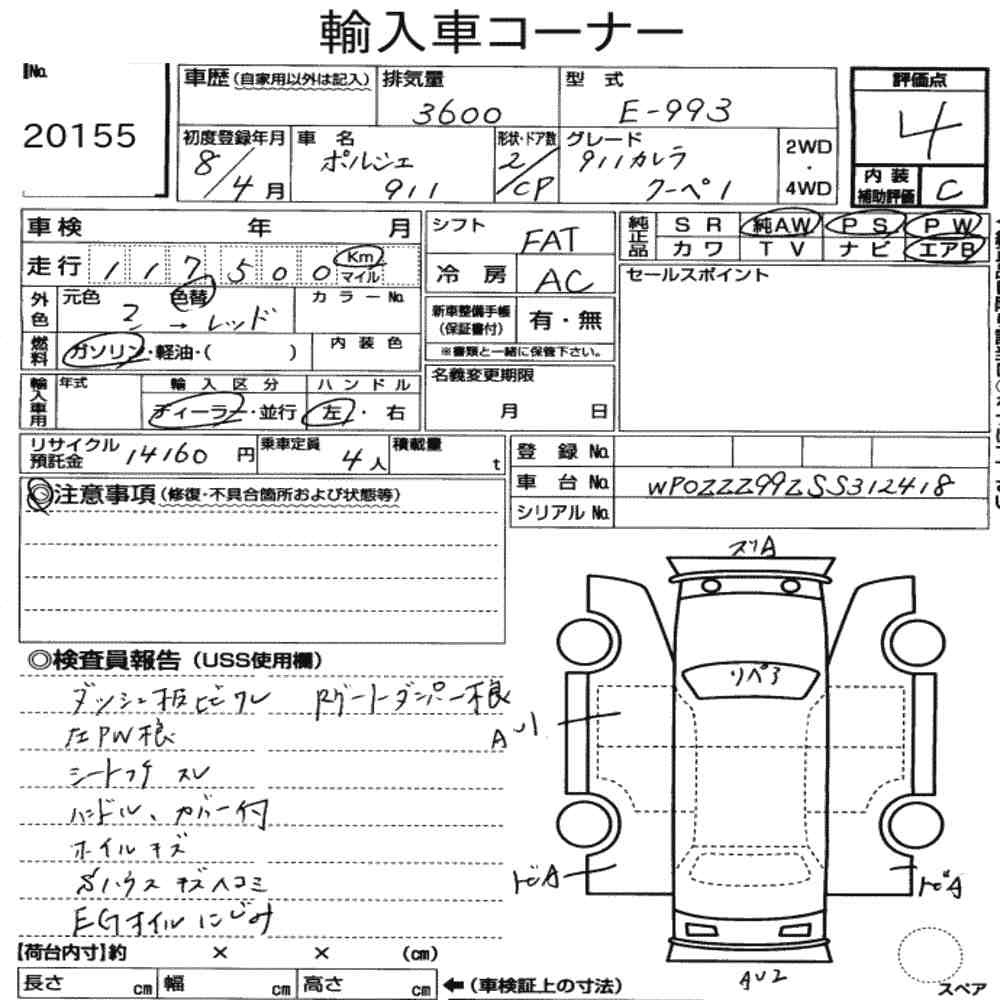 輸入車コーナー
No.
20155
車歴(自家用以外は記入)
排気量
3600
型 式
E-993
評価点
4
内装補助評価
C
初度登録年月
8/4月
車 名
ポルシェ
911
形状・ドア数
2/CP
グレード
911カレラ
クーペ1
2WD
・
4WD
車検 年 月
走行 117500 Km マイル
外色
元色 色替
2 → レッド
カラーNo.
燃料
ガソリン・軽油・( )
内 装 色
輸入車用
年式
輸 入 区 分
ディーラー・並行
ハ ン ド ル
左・右
シフト
FAT
冷 房
AC
新車整備手帳(保証書付)
有・無
※書類と一緒に保管下さい。
名義変更期限
月 日
純正品
SR 純AW PS PW
カワ TV ナビ エアB
セールスポイント
リサイクル預託金 14160 円
乗車定員 4人
積載量 t
登 録 No.
車 台 No. WP0ZZZ99ZSS312418
シリアル No.
◎注意事項(修復・不具合箇所および状態等)
◎検査員報告(USS使用欄)
ダッシュ板ヒビワレ Rゲートダンパー不良
左PW不良
シートコゲ スレ
ハンドル、カバー付
ホイルキズ
Sハウスキズヘコミ
EGオイルにじみ
【荷台内寸】約 × × (cm)
長さ cm 幅 cm 高さ cm ←(車検証上の寸法)
スリA
リペア
A
トビA
トビA
AU2
スペア